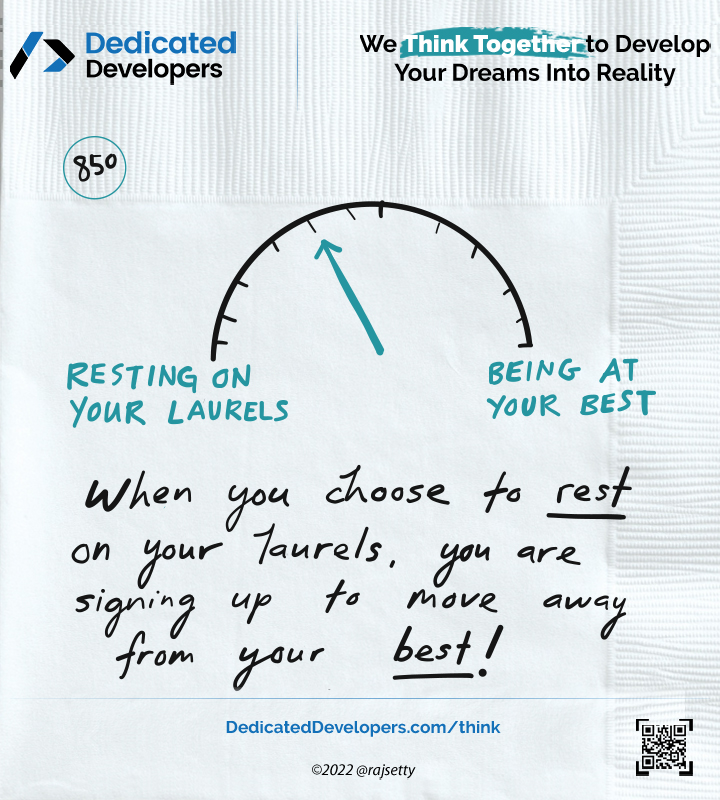 Dedicated
Developers
We Think Together to Develop
Your Dreams Into Reality
850
RESTING ON
YOUR LAURELS
BEING AT
YOUR BEST
When you choose to rest
on your laurels, you are
signing up to move away
from your best!
DedicatedDevelopers.com/think
©2022 @rajsetty